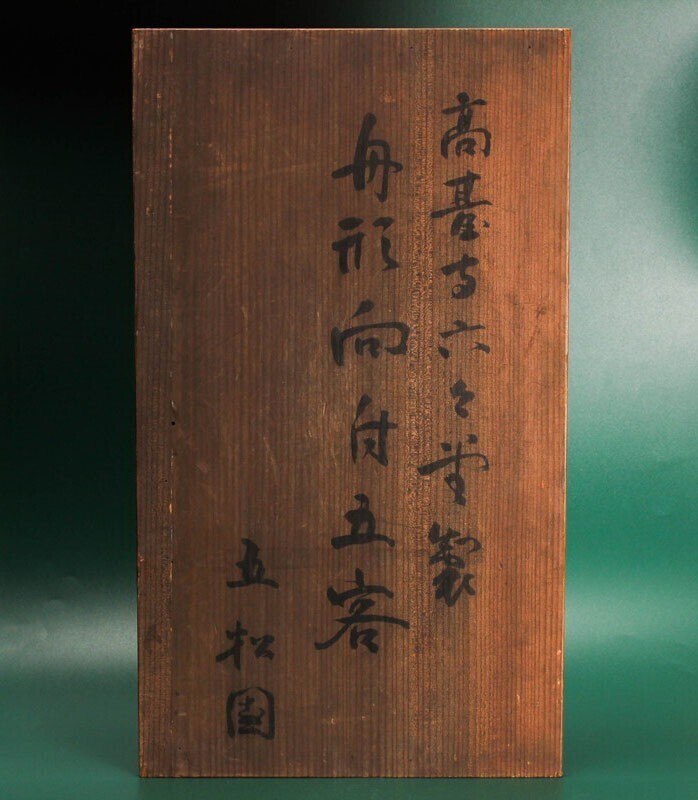 高臺寺六々堂製
舟形向付五客
五松園